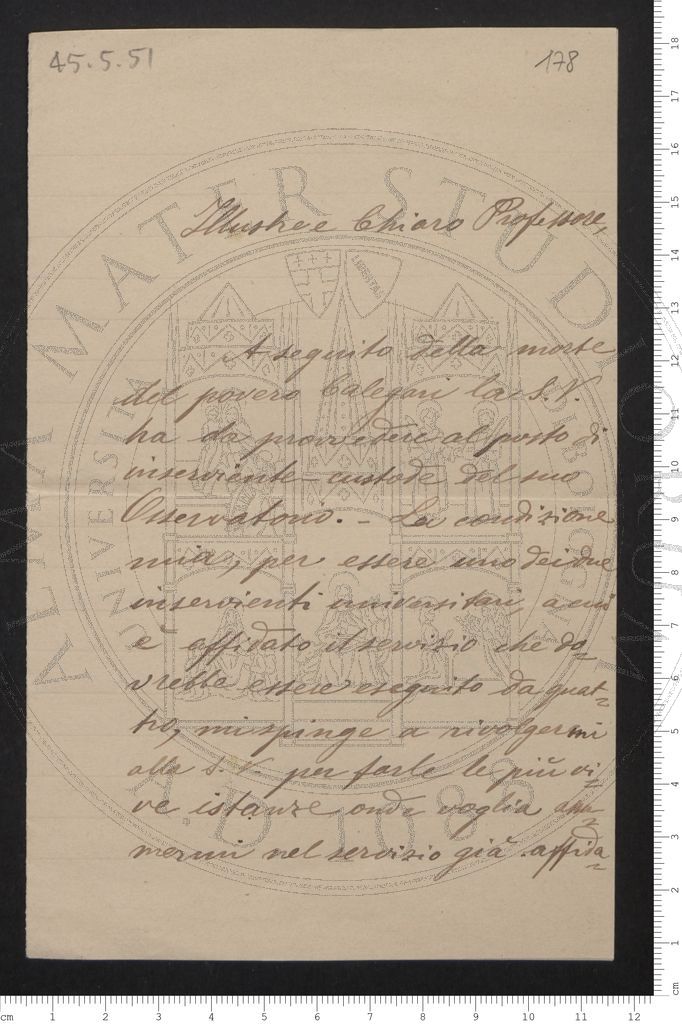 45.5.51
178
Illustre e Chiaro Professore,
A seguito della morte
del povero Calegari la S.V.
ha da provvedere al posto di
inserviente-custode del suo
Osservatorio. - La condizione
mia, per essere uno dei due
inservienti universitari, a cui
è affidato il servizio che do=
vrebbe essere eseguito da quat=
tro, mi spinge a rivolgermi
alla S.V. per farle le più vi=
ve istanze onde voglia assu=
mermi nel servizio già affida=
ALMA MATER STUDIORUM
A.D. 1088
LIBERTAS
cm 1 2 3 4 5 6 7 8 9 10 11 12
18
17
16
15
14
13
12
11
10
9
8
7
6
5
4
3
2
1
cm